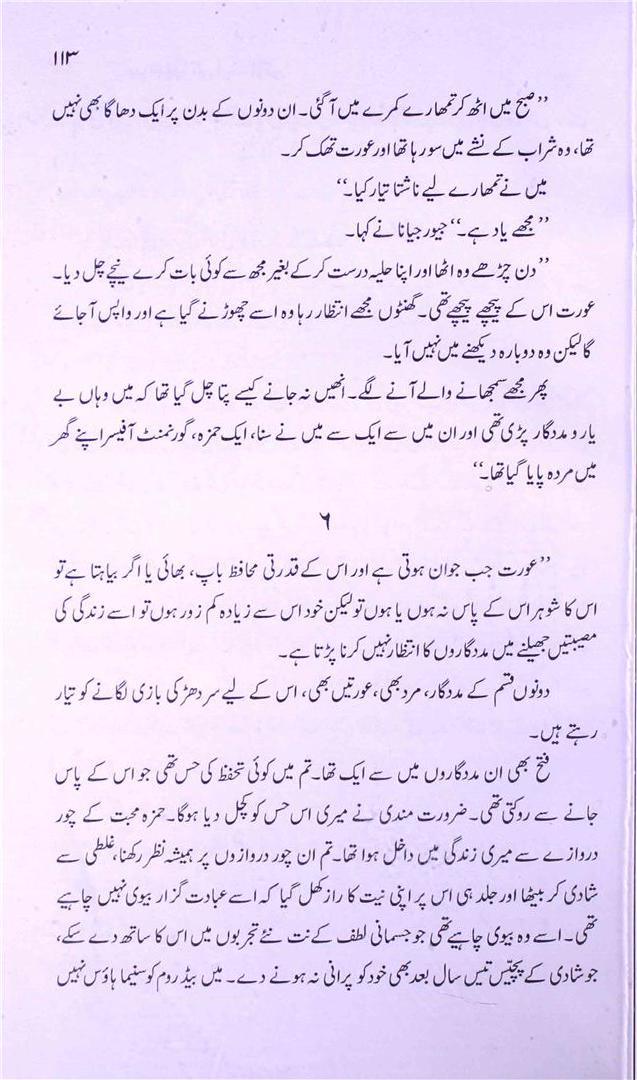 ۱۱۳
”صبح میں اٹھ کر تمھارے کمرے میں آ گئی۔ ان دونوں کے بدن پر ایک دھاگا بھی نہیں
تھا، وہ شراب کے نشے میں سو رہا تھا اور عورت تھک کر۔
میں نے تمھارے لیے ناشتا تیار کیا۔“
”مجھے یاد ہے۔“ جیورجیانا نے کہا۔
”دن چڑھے وہ اٹھا اور اپنا حلیہ درست کر کے بغیر مجھ سے کوئی بات کرے نیچے چل دیا۔
عورت اس کے پیچھے پیچھے تھی۔ گھنٹوں مجھے انتظار رہا وہ اسے چھوڑنے گیا ہے اور واپس آ جائے
گا لیکن وہ دوبارہ دیکھنے میں نہیں آیا۔
پھر مجھے سمجھانے والے آنے لگے۔ انھیں نہ جانے کیسے پتا چل گیا تھا کہ میں وہاں بے
یار و مددگار پڑی تھی اور ان میں سے ایک سے میں نے سنا، ایک حمزہ، گورنمنٹ آفیسر اپنے گھر
میں مردہ پایا گیا تھا۔“
۶
”عورت جب جوان ہوتی ہے اور اس کے قدرتی محافظ باپ، بھائی یا اگر بیاہتا ہے تو
اس کا شوہر اس کے پاس نہ ہوں یا ہوں تو لیکن خود اس سے زیادہ کم زور ہوں تو اسے زندگی کی
مصیبتیں جھیلنے میں مددگاروں کا انتظار نہیں کرنا پڑتا ہے۔
دونوں قسم کے مددگار، مرد بھی، عورتیں بھی، اس کے لیے سر دھڑ کی بازی لگانے کو تیار
رہتے ہیں۔
فتح بھی ان مددگاروں میں سے ایک تھا۔ تم میں کوئی تحفظ کی حس تھی جو اس کے پاس
جانے سے روکتی تھی۔ ضرورت مندی نے میری اس حس کو کچل دیا ہوگا۔ حمزہ محبت کے چور
دروازے سے میری زندگی میں داخل ہوا تھا۔ تم ان چور دروازوں پر ہمیشہ نظر رکھنا، غلطی سے
شادی کر بیٹھا اور جلد ہی اس پر اپنی نیت کا راز کھل گیا کہ اسے عبادت گزار بیوی نہیں چاہیے
تھی۔ اسے وہ بیوی چاہیے تھی جو جسمانی لطف کے نت نئے تجربوں میں اس کا ساتھ دے سکے،
جو شادی کے پچیس تیس سال بعد بھی خود کو پرانی نہ ہونے دے۔ میں بیڈ روم کو سنیما ہاؤس نہیں